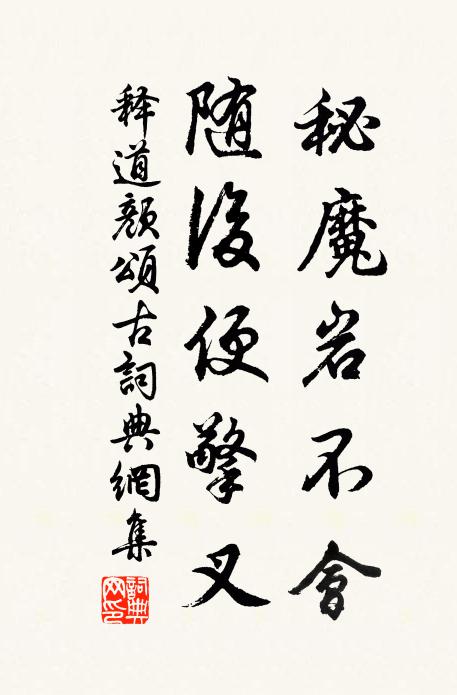 秘魔岩不會
随後便擎叉
释道颜頌古詞典網集
詞典
网印